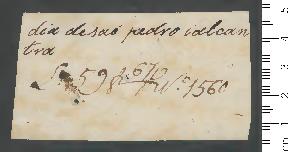 dia desaõ pedro ialcan
tra
598 670 Nº 1560